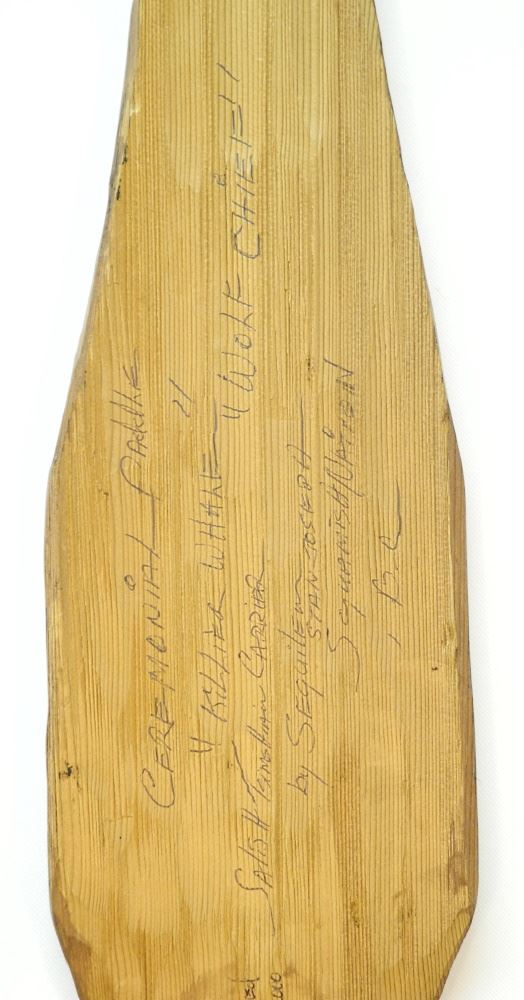 CEREMONIAL PADDLE
"KILLER WHALE"
"WOLF CHIEF"
SALISH TSIMSHIAN CARRIER
by SEQUILEM
STAN JOSEPH
SQUAMISH NATION
, B.C